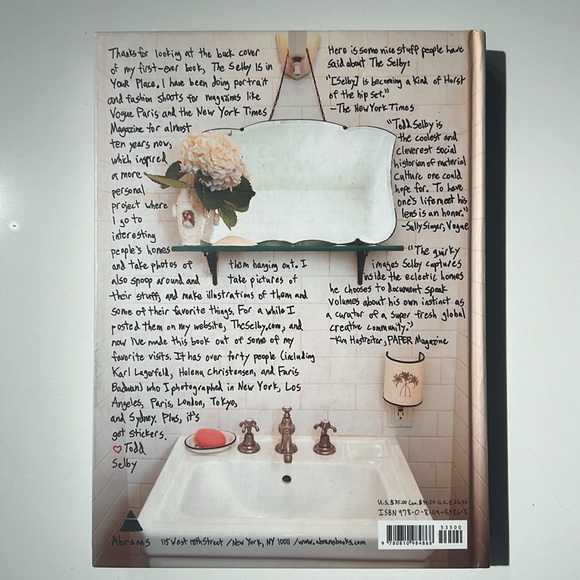 Thanks for looking at the back cover
of my first-ever book, The Selby Is in
Your Place. I have been doing portrait
and fashion shoots for magazines like
Vogue Paris and the New York Times
Magazine for almost
ten years now,
which inspired
a more
personal
project where
I go to
interesting
people's homes
and take photos of them hanging out. I
also snoop around and take pictures of
their stuff, and make illustrations of them and
some of their favorite things. For a while I
posted them on my website, TheSelby.com, and
now I've made this book out of some of my
favorite visits. It has over forty people (including
Karl Lagerfeld, Helena Christensen, and Faris
Badwan) who I photographed in New York, Los
Angeles, Paris, London, Tokyo,
and Sydney. Plus, it's
got stickers.
♡ Todd
Selby
Here is some nice stuff people have
said about The Selby:
"[Selby] is becoming a kind of Horst
of the hip set."
—The New York Times
"Todd Selby is
the coolest and
cleverest social
historian of material
culture one could
hope for. To have
one's life meet his
lens is an honor."
—Sally Singer, Vogue
"The quirky
images Selby captures
inside the eclectic homes
he chooses to document speak
volumes about his own instinct as
a curator of a super fresh global
creative community."
—Kim Hastreiter, PAPER Magazine
U.S. $35.00
ISBN 978-0-8109-8486-8
53500
9 780810 984868
Abrams 115 West 18th Street / New York, NY 10011 / www.abramsbooks.com